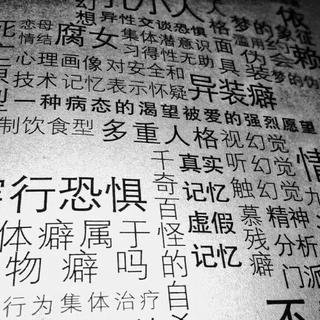 恋母情结
幻想
异性交谈恐惧
人格
梦的象征
滥用药
依赖
腐女
集体潜意识
面具
伪装
梦的伪
习得性无助
心理画像
对安全和
异装癖
技术
记忆表示怀疑
一种病态的渴望被爱的强烈愿望
制饮食型
多重人格
视幻觉
听幻觉
触幻觉
千奇百怪的自杀
真实记忆
虚假记忆
慕残癖
精神分析
九门派
情
行恐惧
体癖属于
物癖吗
行为
集体治疗
不